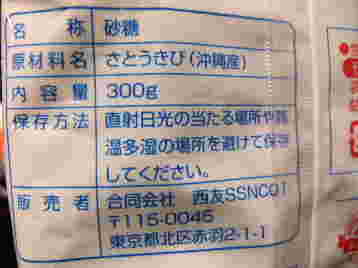 名称 砂糖
原材料名 さとうきび(沖縄産)
内容量 300g
保存方法 直射日光の当たる場所や高
温多湿の場所を避けて保存
してください。
販売者 合同会社 西友SSNC01
〒115-0045
東京都北区赤羽2-1-1